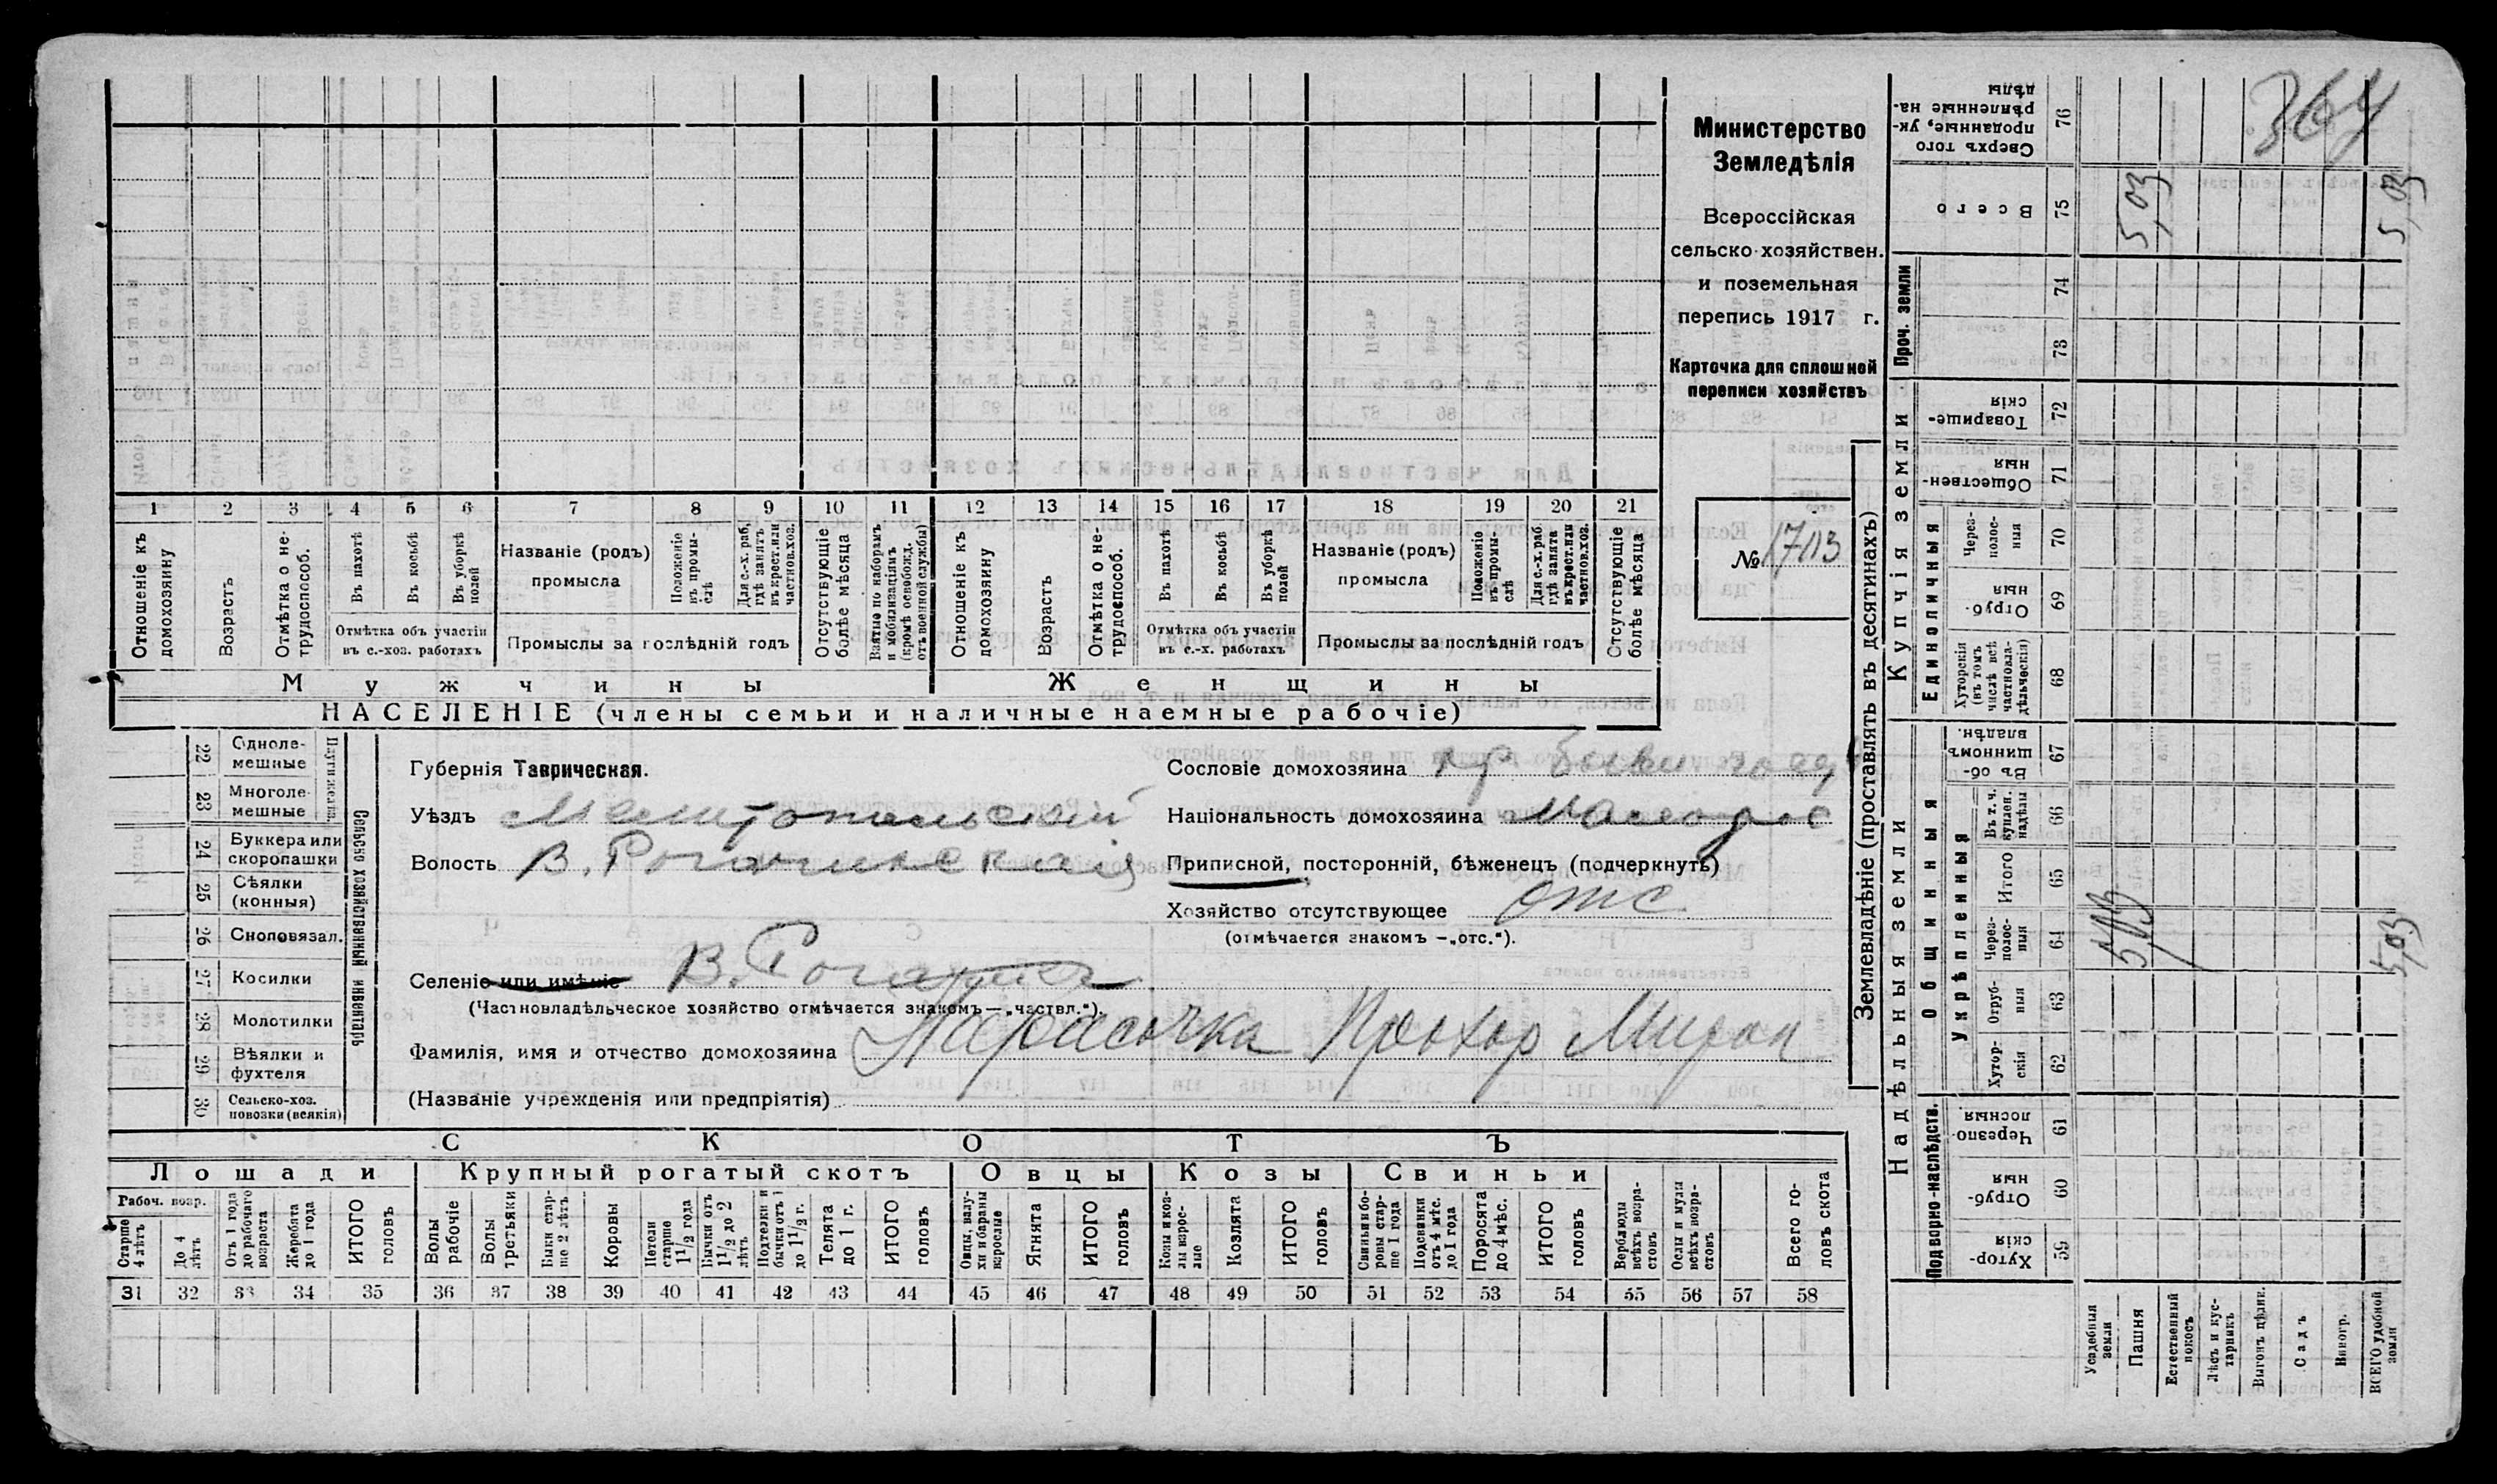 Министерство
Земледѣлія
Всероссійская
сельско-хозяйствен.
и поземельная
перепись 1917 г.
Карточка для сплошной
переписи хозяйствъ
№ 1703
364
1 2 3 4 5 6 7 8 9 10 11 12 13 14 15 16 17 18 19 20 21
Отношеніе къ домохозяину
Возрастъ
Отмѣтка о нетрудоспособ.
Въ пахотѣ
Въ косьбѣ
Въ уборкѣ полей
Отмѣтка объ участіи
въ с.-хоз. работахъ
Названіе (родъ)
промысла
Положеніе въ промы-слѣ
Для с.-х. раб. гдѣ занятъ въ крест. или частнов. хоз.
Промыслы за послѣдній годъ
Отсутствующіе болѣе мѣсяца
Взятые по наборамъ и мобилизаціямъ (кромѣ освобожд. отъ военной службы)
Отношеніе къ домохозяину
Возрастъ
Отмѣтка о не-трудоспособ.
Въ пахотѣ
Въ косьбѣ
Въ уборкѣ полей
Отмѣтка объ участіи
въ с.-х. работахъ
Названіе (родъ)
промысла
Положеніе въ промы-слѣ
Для с.-х. раб. гдѣ занята въ крест. или частнов. хоз.
Промыслы за послѣдній годъ
Отсутствующіе болѣе мѣсяца
Мужчины
Женщины
НАСЕЛЕНІЕ (члены семьи и наличные наемные рабочіе)
Сельско хозяйственный инвентарь
22 Одноле-мешные
23 Многоле-мешные
24 Буккера или скоропашки
25 Сѣялки (конныя)
26 Сноповязал.
27 Косилки
28 Молотилки
29 Вѣялки и фухтеля
30 Сельско-хоз. повозки (всякія)
Губернія Таврическая.
Уѣздъ Мелитопольский
Волость В. Рогачикская
Селеніе или имѣніе В. Рогачик
(Частновладѣльческое хозяйство отмѣчается знакомъ — „частвл.“).
Фамилія, имя и отчество домохозяина Парасочка Прохор Мирон
(Названіе учрежденія или предпріятія)
Сословіе домохозяина кр бывш госуд
Національность домохозяина Малорос
Приписной, посторонній, бѣженецъ (подчеркнуть)
Хозяйство отсутствующее отс
(отмѣчается знакомъ — „отс.“).
СКОТЪ
Лошади Крупный рогатый скотъ Овцы Козы Свиньи
Рабоч. возр.
Старше 4 лѣтъ
До 4 лѣтъ
Отъ 1 года до рабочаго возраста
Жеребята до 1 года
ИТОГО головъ
Волы рабочіе
Волы третьяки
Быки стар-ше 2 лѣтъ
Коровы
Нетели старше 1 1/2 года
Бычки отъ 1 1/2 до 2 лѣтъ
Подтелки и бычки отъ 1 до 1 1/2 г.
Телята до 1 г.
ИТОГО головъ
Овцы, валу-хи и бараны взрослые
Ягнята
ИТОГО головъ
Козы и коз-лы взрос-лые
Козлята
ИТОГО головъ
Свиньи и бо-ровы стар-ше 1 года
Подсвинки отъ 4 мѣс. до 1 года
Поросята до 4 мѣс.
ИТОГО головъ
Верблюды всѣхъ возра-стовъ
Ослы и мулы всѣхъ возра-стовъ
Всего го-ловъ скота
31 32 33 34 35 36 37 38 39 40 41 42 43 44 45 46 47 48 49 50 51 52 53 54 55 56 57 58
Землевладѣніе (проставлять въ десятинахъ)
Купчія земли
Надѣльныя земли
Сверхъ того проданные, ук-рѣпленные на-дѣлы 76
Всего 75 5,03 5,03
Проч. земли 74 73
Товарище-скія 72
Обществен-ныя 71
Единоличныя
Через-полос-ныя 70
Отруб-ныя 69
Хуторскія (въ томъ числѣ всѣ частновла-дѣльческія) 68
Общинныя
Въ об-щинномъ владѣн. 67
Укрѣпленныя
Въ т. ч. куплен. надѣлы 66
Итого 65
Через-полос-ныя 64 5,03 5,03
Отруб-ныя 63
Хутор-скія 62
Подворно-наслѣдств.
Черезпо-лосныя 61
Отруб-ныя 60
Хутор-скія 59
Усадебныя земли
Пашня
Естественный покосъ
Лѣсъ и кус-тарникъ
Выгонъ цѣлин.
Садъ
Виногр.
ВСЕГО удобной земли